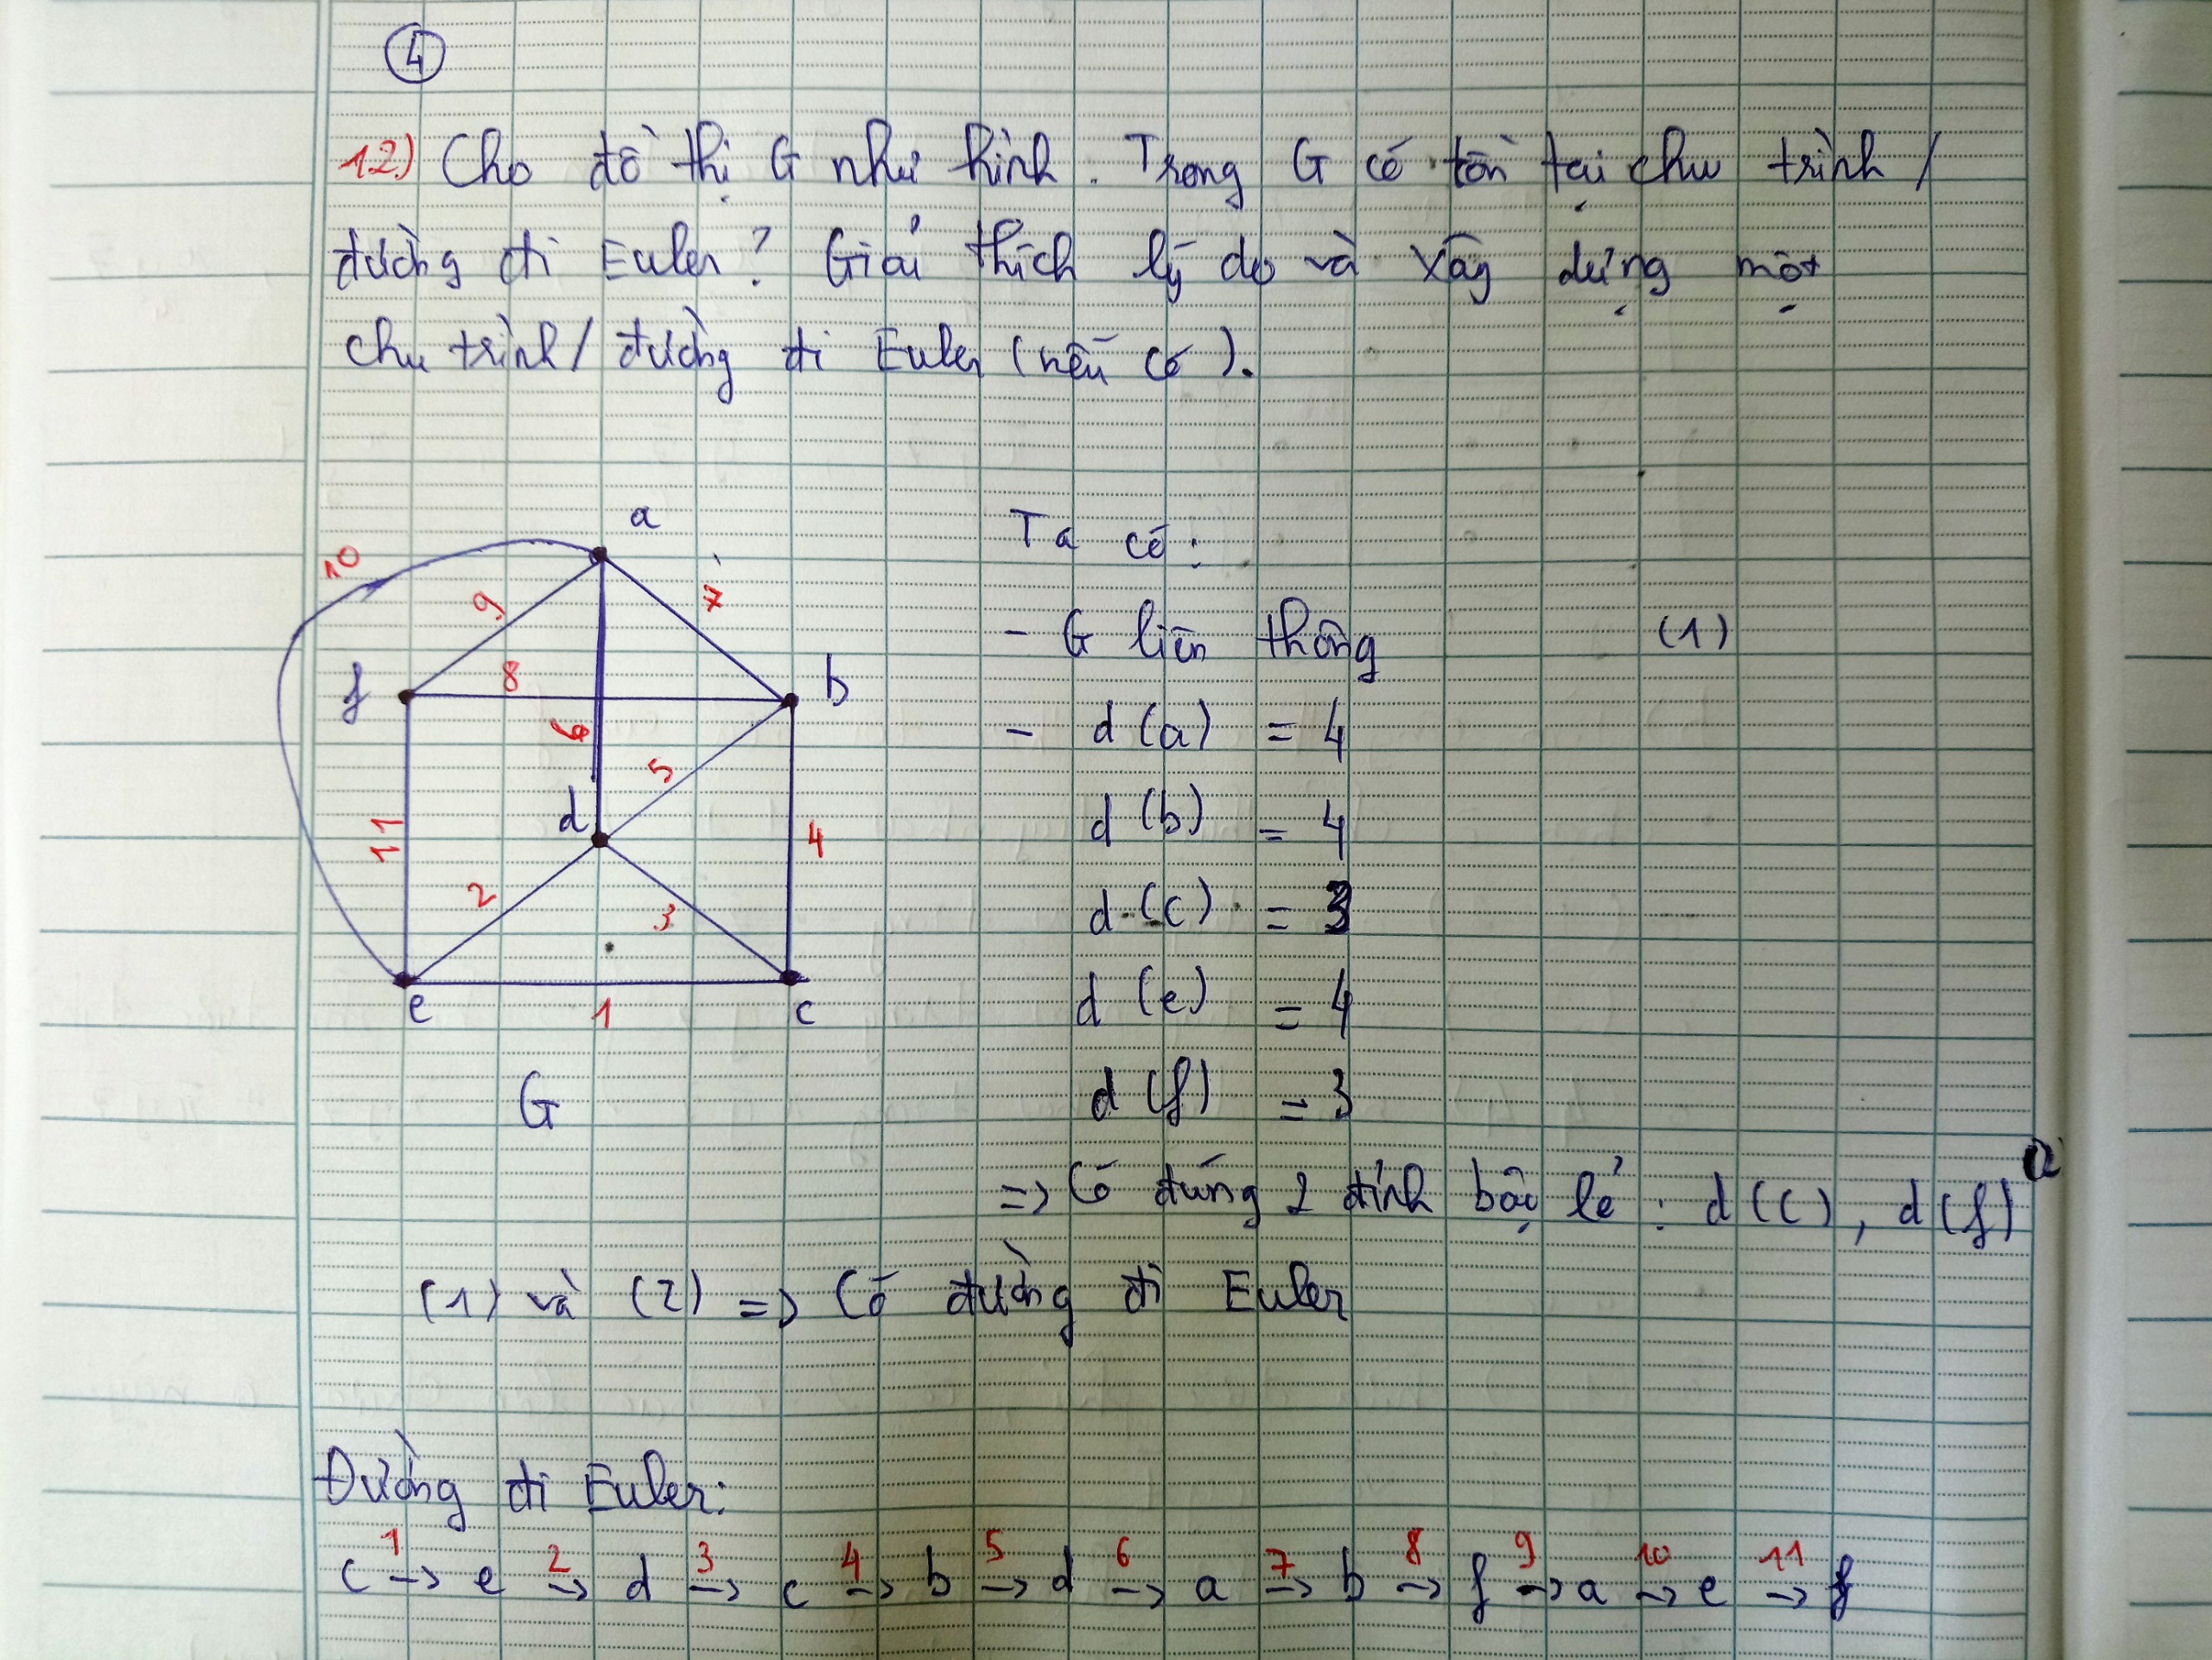 4
12) Cho đồ thị G như hình. Trong G có tồn tại chu trình /
đường đi Euler? Giải thích lý do và xây dựng một
chu trình / đường đi Euler (nếu có).
a
10
9
7
f
8
b
6
5
d
11
4
2
3
e
1
c
G
Ta có:
- G liên thông (1)
- d (a) = 4
d (b) = 4
d (c) = 3
d (e) = 4
d (f) = 3
=> Có đúng 2 đỉnh bậc lẻ : d (c), d (f) (2)
(1) và (2) => Có đường đi Euler
Đường đi Euler:
1 2 3 4 5 6 7 8 9 10 11
c -> e -> d -> c -> b -> d -> a -> b -> f -> a -> e -> f